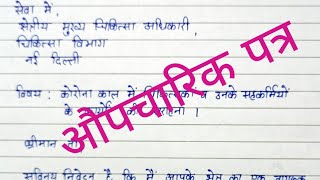 सेवा में,
क्षेत्रीय मुख्य चिकित्सा अधिकारी,
चिकित्सा विभाग
नई दिल्ली
विषय : कोरोना काल में चिकित्सकों व उनके सहकर्मियों
के की सराहना ।
औपचारिक पत्र
श्रीमान जी
सविनय निवेदन है कि मैं आपके क्षेत्र का एक जागरूक